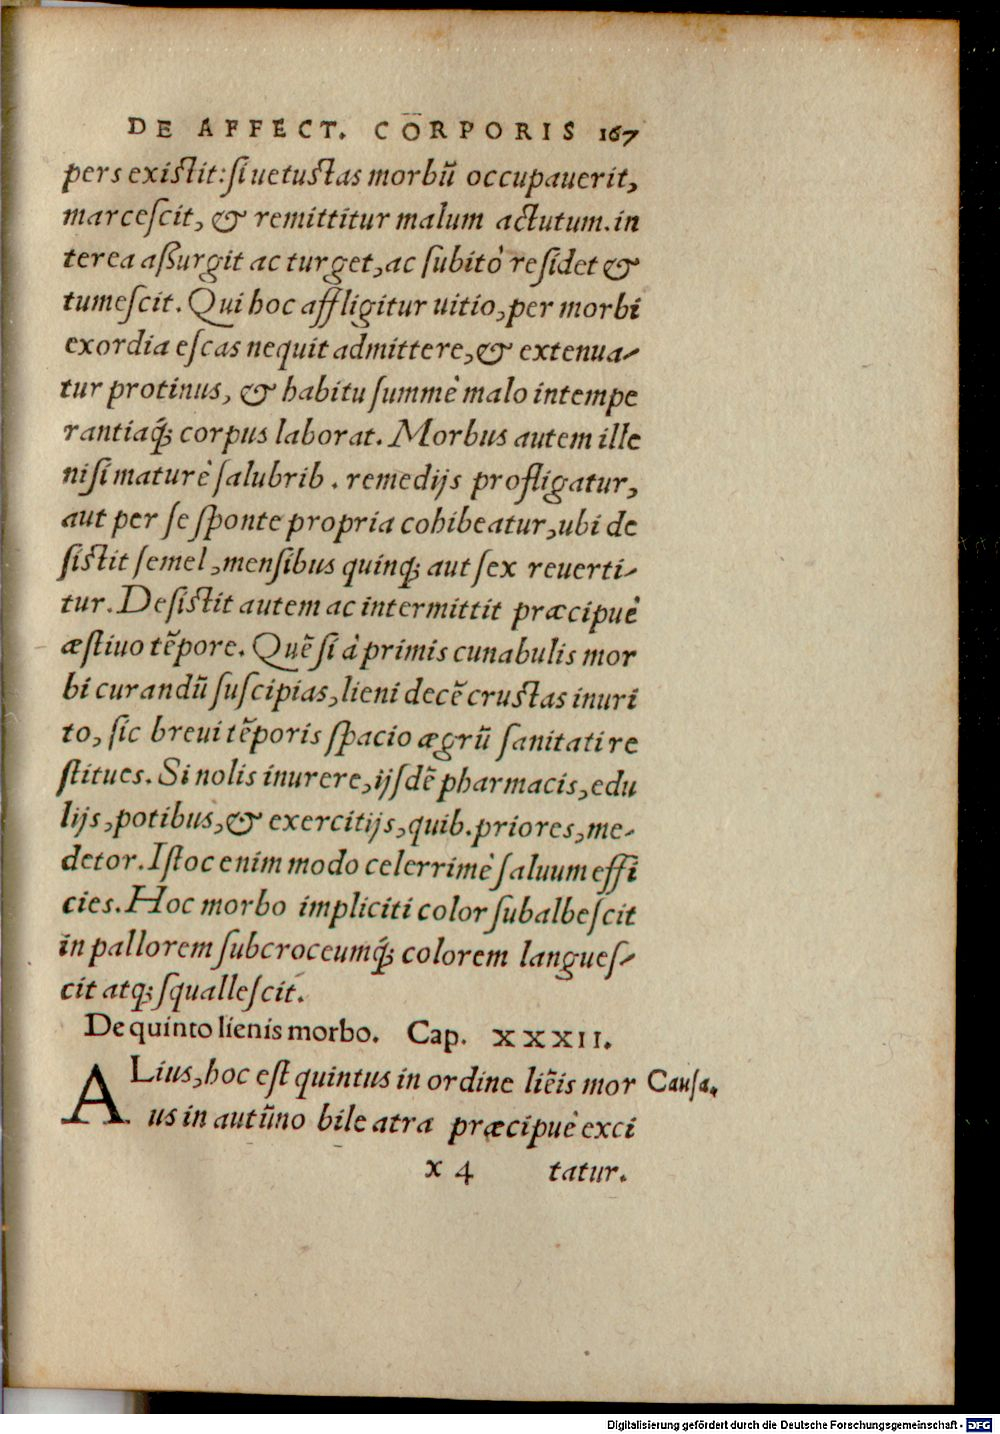 DE AFFECT. CORPORIS 167
pers existit: si uetustas morbũ occupauerit,
marcescit, & remittitur malum actutum. in
terea aßurgit ac turget, ac subitò residet &
tumescit. Qui hoc affligitur uitio, per morbi
exordia escas nequit admittere, & extenua-
tur protinus, & habitu summè malo intempe
rantiaq́; corpus laborat. Morbus autem ille
nisi maturè salubrib. remedijs profligatur,
aut per se sponte propria cohibeatur, ubi de
sistit semel, mensibus quinq; aut sex reuerti-
tur. Desistit autem ac intermittit præcipuè
æstiuo tẽpore. Quẽ si à primis cunabulis mor
bi curandũ suscipias, lieni decẽ crustas inuri
to, sic breui tẽporis spacio ægrũ sanitati re
stitues. Si nolis inurere, ijsdẽ pharmacis, edu
lijs, potibus, & exercitijs, quib. priores, me-
detor. Istoc enim modo celerrimè saluum effi
cies. Hoc morbo impliciti color subalbescit
in pallorem subcroceumq́; colorem langues-
cit atq; squallescit.
De quinto lienis morbo. Cap. XXXII.
ALius, hoc est quintus in ordine liẽis mor Causa.
us in autũno bile atra præcipuè exci
x 4 tatur.
Digitalisierung gefördert durch die Deutsche Forschungsgemeinschaft - DFG